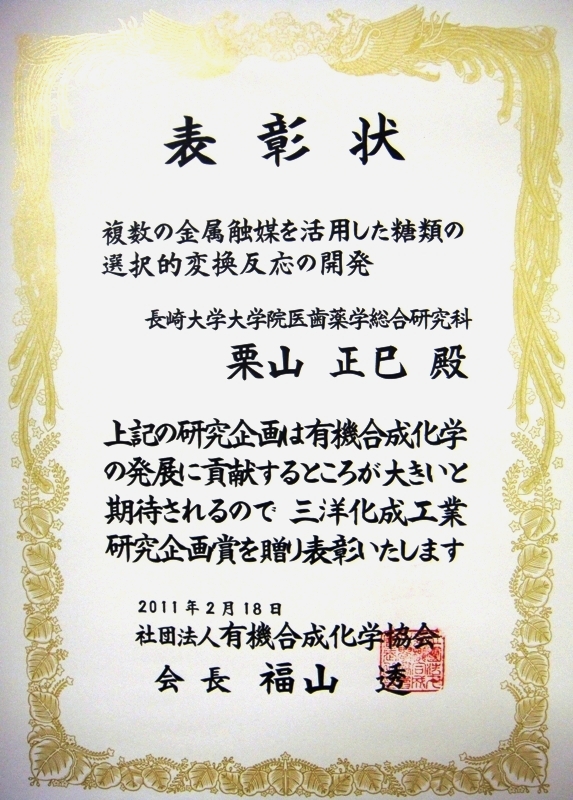 表彰状
複数の金属触媒を活用した糖類の
選択的変換反応の開発
長崎大学大学院医歯薬学総合研究科
栗山 正巳 殿
上記の研究企画は有機合成化学
の発展に貢献するところが大きいと
期待されるので 三洋化成工業
研究企画賞を贈り表彰いたします
2011年2月18日
社団法人有機合成化学協会
会長 福山 透